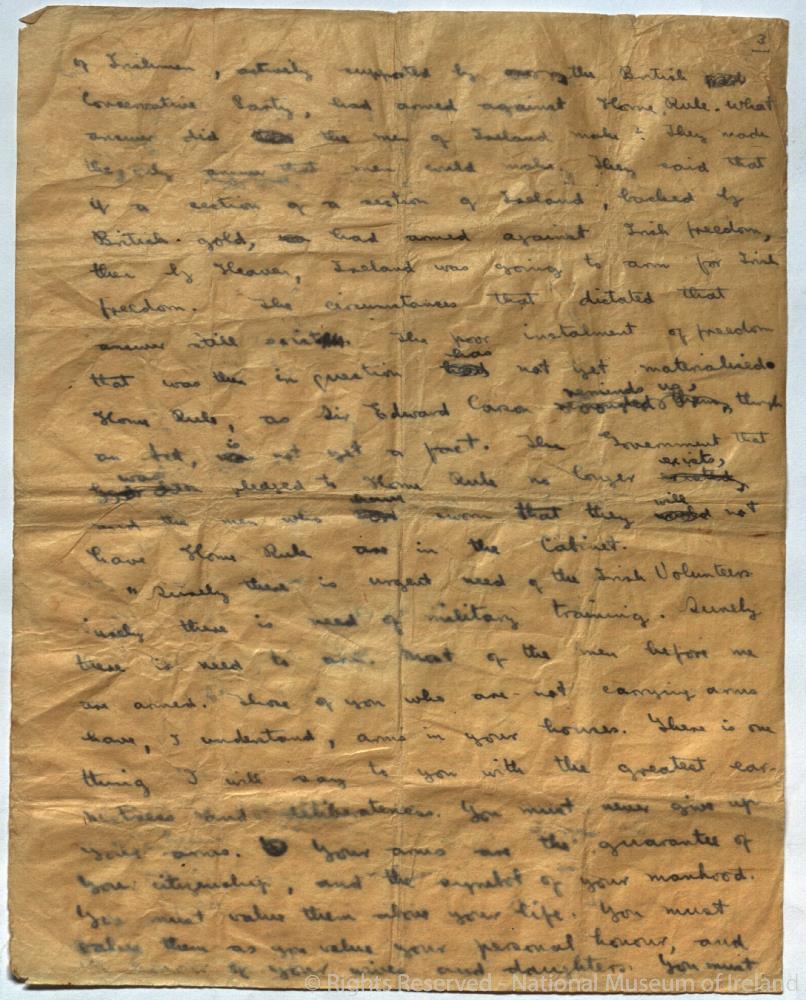 3
of Irishmen, actively supported by the British
Conservative Party, had armed against Home Rule. What
answer did the men of Ireland make? They made
the only answer that men could make. They said that
if a section of a section of Ireland, backed by
British gold, had armed against Irish freedom,
then by Heaven, Ireland was going to arm for Irish
freedom. The circumstances that dictated that
answer still exist. The poor instalment of freedom
has
that was then in question had not yet materialised.
reminds us,
Home Rule, as Sir Edward Carson though
is
an Act, not yet a fact. The Government that
was exists,
pledged to Home Rule no longer existed,
have will
and the men who sworn that they would not
have Home Rule are in the Cabinet.
"Surely there is urgent need of the Irish Volunteers
surely there is need of military training. Surely
there is need to arm. Most of the men before me
are armed. Those of you who are not carrying arms
have, I understand, arms in your houses. There is one
thing I will say to you with the greatest ear-
nestness and deliberateness. You must never give up
your arms. Your arms are the guarantee of
your citizenship, and the symbol of your manhood.
You must value them above your life. You must
value them as you value your personal honour, and
the honour of your wives and daughters. You must
© Rights Reserved - National Museum of Ireland